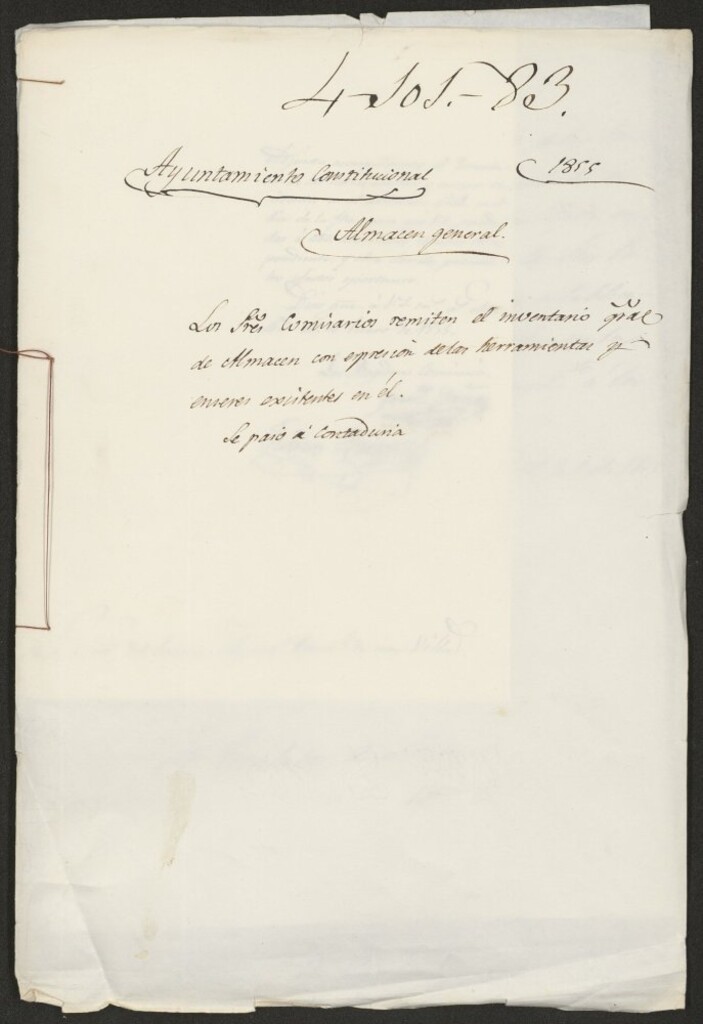 4-101.-83.
Ayuntamiento Constitucional 1855
Almacen general.
Los Sres. Comisarios remiten el inventario gral
de Almacen con espresion de las herramientas y
enseres existentes en él.
Se pasó á Contaduria